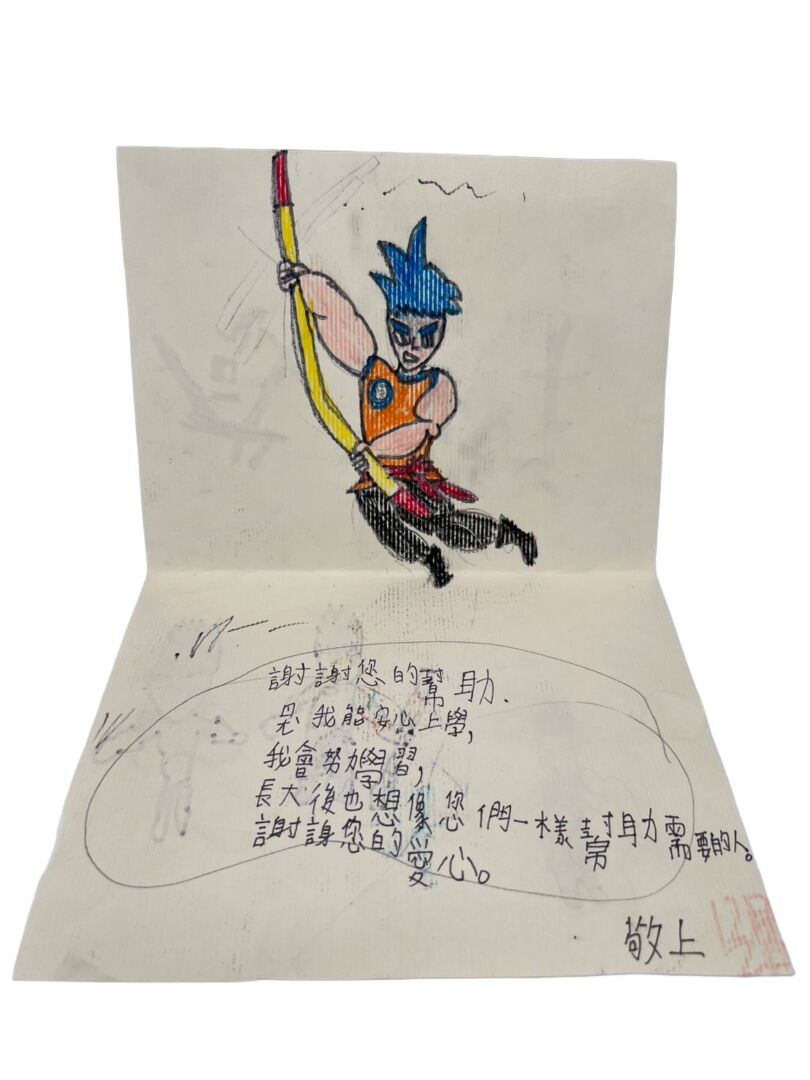 謝謝您的幫助.
我能安心上學,
我會努力學習,
長大後也想像您們一樣幫助需要的人。
謝謝您的愛心。
敬上